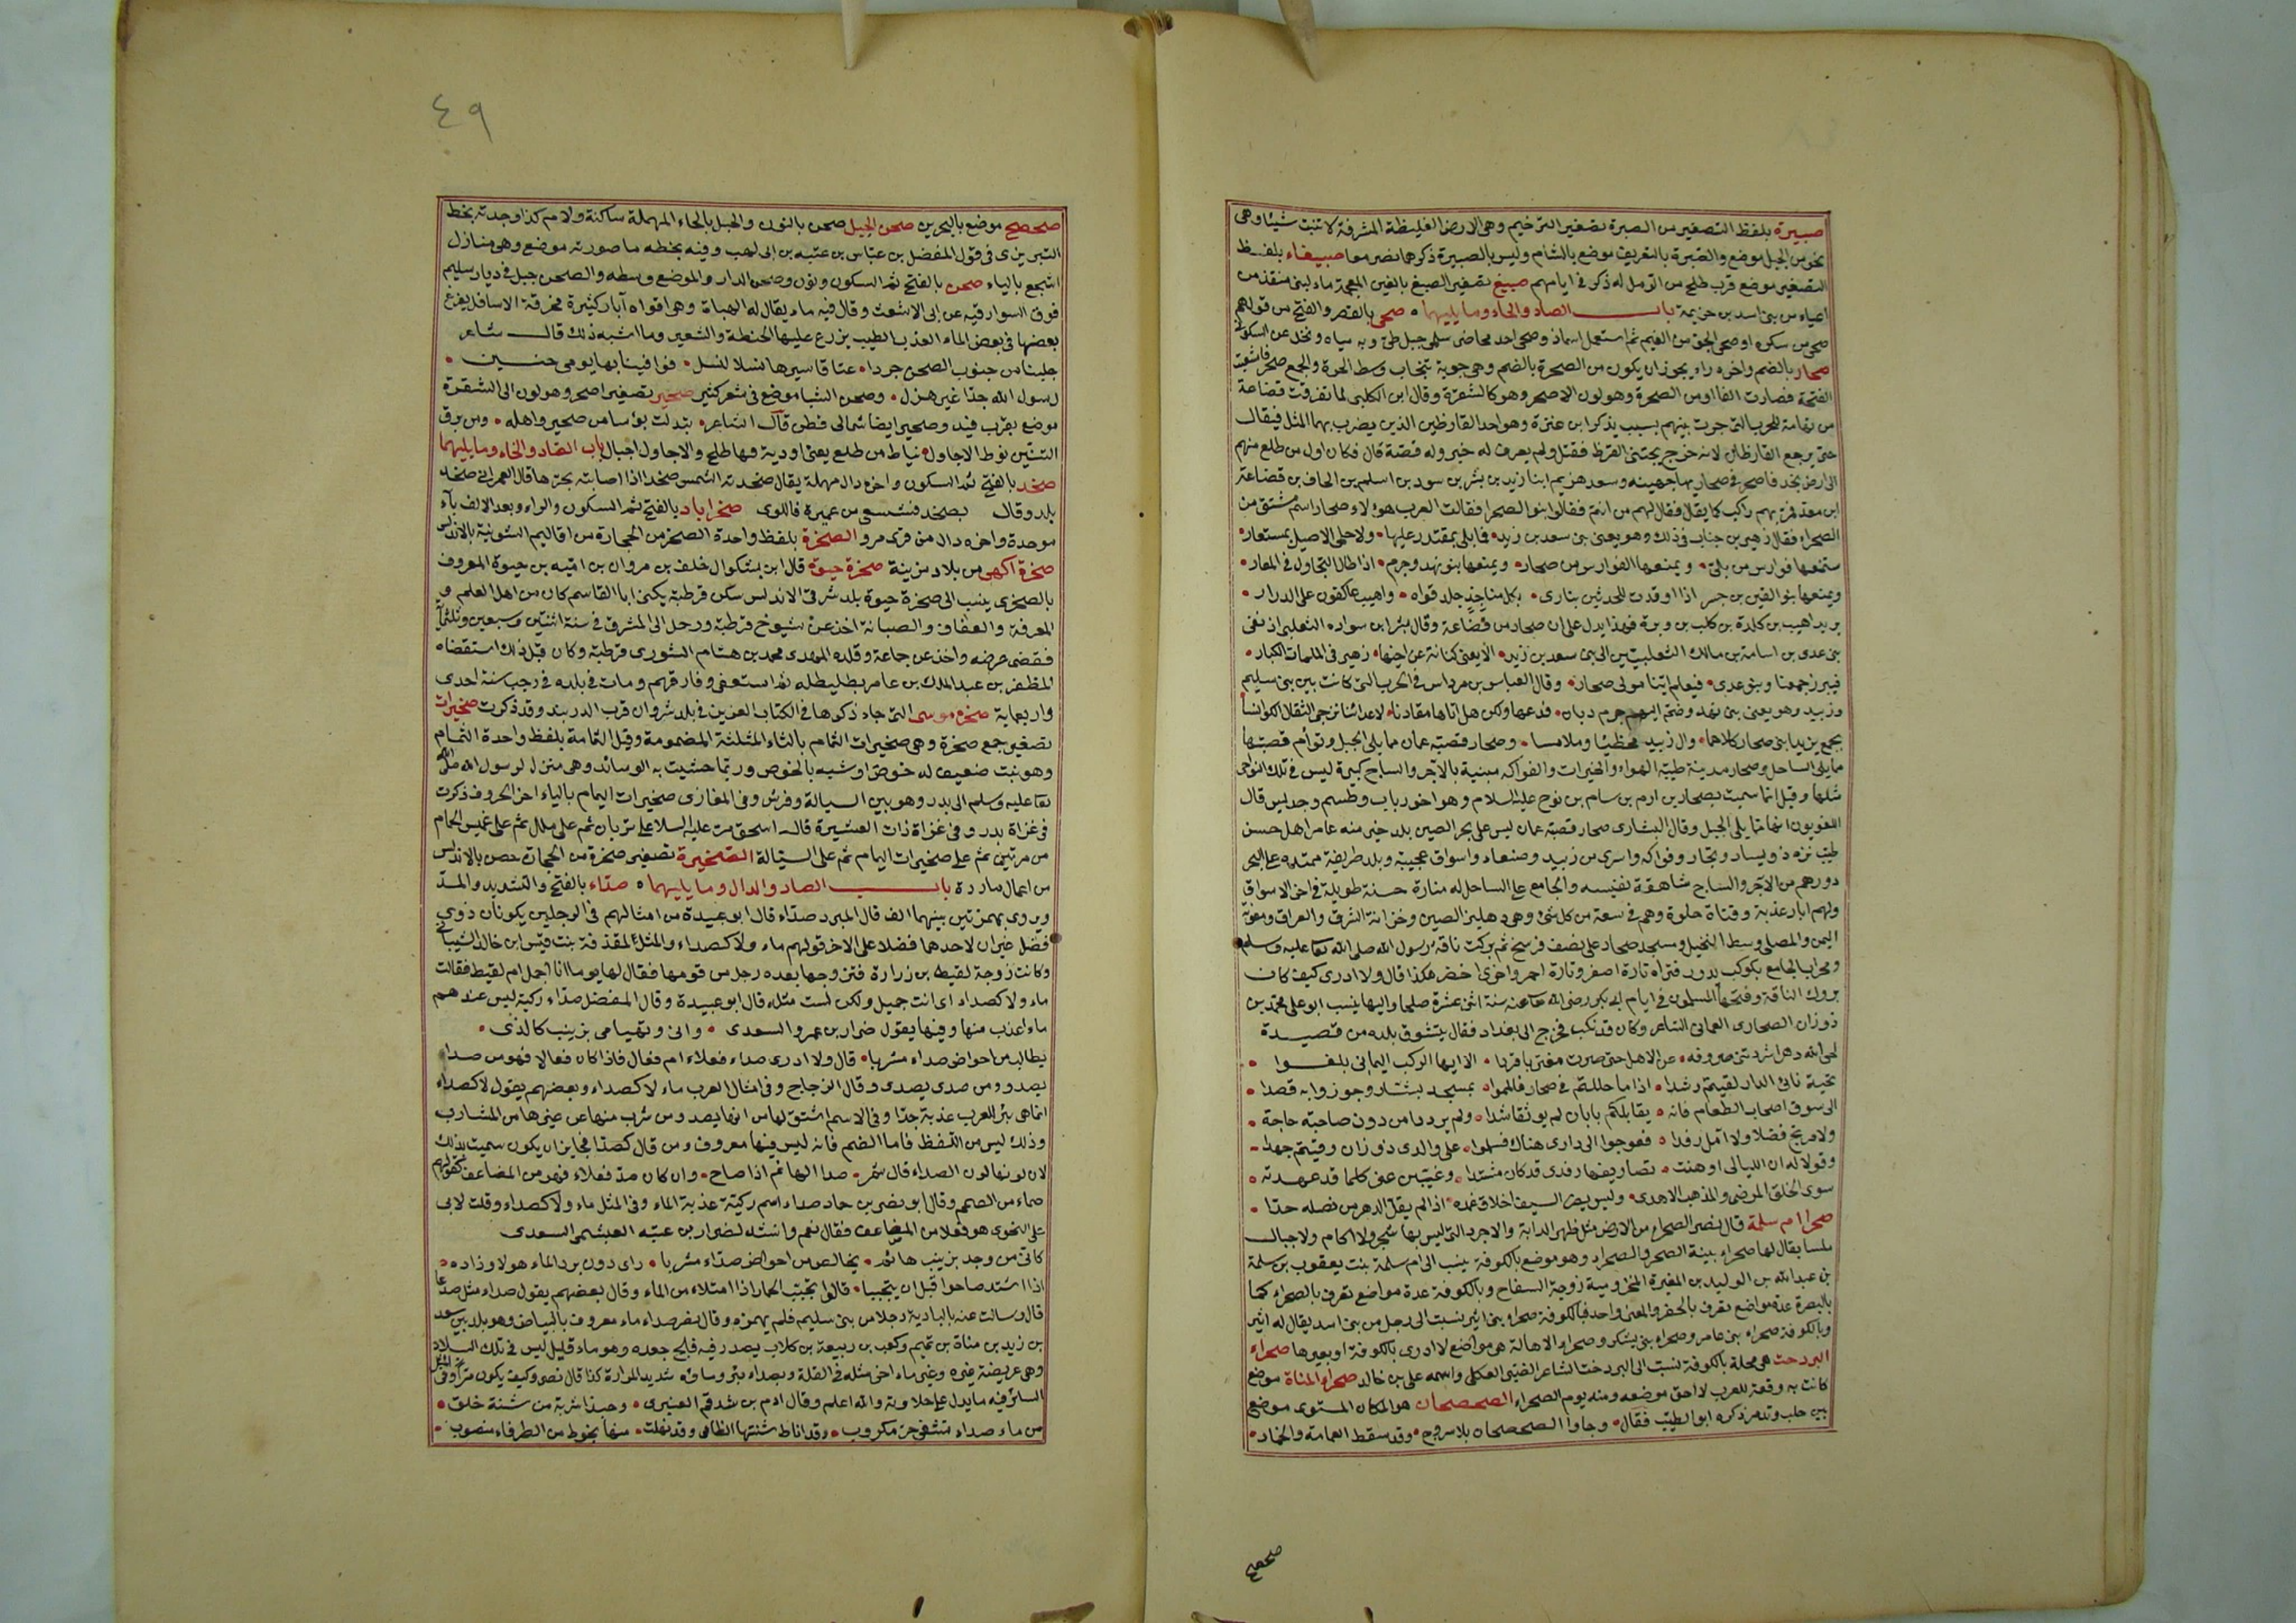 صبيرة بلفظ التصغير من الصبرة تصغير الترخيم وهى الارض الغليظة المشرفة لا تنبت شيئا وهى
نحو من الجبل موضع والصبيرة بالتعريف موضع بالشام وليس بالصبيرة ذكرهما نصر معا صبيغاء بلفظ
التصغير موضع قرب طلح من الرمل له ذكر فى ايامهم صبيغ تصغير الصبغ بالغين المعجمة ماء لبنى منقذ من
اعياء من بنى اسد بن خزيمة باب الصاد والحاء وما يليهما صحى بالقصر والفتح من قولهم
صحى من سكره او صحى الجو من الغيم ثم استعمل اسما وصحى احد محاضر سلمى جبل طئ وبه مياه ونخل عن السكونى
صحار بالضم واخره راء يجوز ان يكون من الصحرة بالضم وهى جوبة تنجاب وسط الحرة والجمع صحر فاشبعت
الفتحة فصارت الفا او من الصحرة وهو لون الاصحر وهو كالشقرة وقال ابن الكلبى لما تفرقت قضاعة
من تهامة للحرب التى جرت بينهم بسبب يذكر ابن عنزة وهو احد القارظين الذين يضرب بهما المثل فيقال
حتى يرجع القارظان لانه خرج يجتنى القرظ فقتل ولم يعرف له خبر وله قصة قال فكان اول من طلع منهم
الى ارض نجد فاصحر فى صحاريها جهينه وسعد هزيم ابنا زيد بن بشر بن سود بن اسلم بن الحاف بن قضاعة
ابن معد فمر بهم راكب كما يقال فقال لهم من انتم فقالوا بنو الصحرا فقالت العرب هؤلاء صحار اسم مشتق من
الصحراء فقال زهير بن جناب فى ذلك وهو يعنى بنى سعد بن زيد فا بلى بمقتدر عليها ولا حلمى الاصيل بمستعار
ستمنعها فوارس من بلى ويمنعها الفوارس من صحار ويمنعها بنو نهد وجرم اذا طال التجاول فى المغار
ويمنعها بنو القين بن جسر اذا اوقدت للحدثين نارى بكل مناجذ جلد قواه واهيب عاكفون على الدوار
يريد اهيب بن كلدة بن كلب بن وبرة فهذا يدل على ان صحار من قضاعة وقال بشر ابن سواده التغلبى اذ نفى
بنى عدى بن اسامة بن مالك التغلبيين الى بنى سعد بن زيد الا يغنى كنانة عن اخيها زهير فى الملمات الكبار
فيبرز جمعنا وبنو عدى فيعلم اينا مولى صحار وقال العباس بن مرداس فى الحرب التى كانت بين بنى سليم
وزبيد وهو يعنى بنى نهد وضم اليهم جرم دبان فدعها ولكن هل اتاها مقادنا لاعدائنا نزجى الثقال الكوانسا
بجمع يزيد ابنى صحار كلاهما وال زبيد مخطئا وملامسا وصحار قصبة عمان مما يلى الجبل وتوأم قصبتها
مما يلى الساحل وصحار مدينة طيبة الهواء والخيرات والفواكه مبنية بالآجر والساج كبيرة ليس فى تلك النواحى
مثلها وقيل انما سميت بصحار بن ارم بن سام بن نوح عليه السلام وهو اخو رباب وطسم وجديس قال
اللغويون انها مما يلى الجبل وقال البشارى صحار قصبة عمان ليس على بحر الصين بلد خير منه عامر اهل حسن
طيب نزه ذو يسار وتجار وفواكه واسرى من زبيد وصنعاء واسواق عجيبة وبلد طريفة ممتده على البحر
دورهم من الآجر والساج شاهقة نفيسه والجامع على الساحل له منارة حسنة طويلة فى اخر الاسواق
ولهم ابار عذبة وقناة حلوة وهم فى سعة من كل شئ وهى دهليز الصين وخزانة الشرق والعراق ومغوثة
اليمن والمصلى وسط النخيل ومسجد صحار على نصف فرسخ ثم بركت ناقة رسول الله صلى الله تعا عليه وسلم
ومحراب الجامع بكوكب يدور فتراه تارة اصفر وتارة احمر واخرى اخضر هكذا قال ولا ادرى كيف كان
بروك الناقة وفتحها المسلمون فى ايام ابى بكر رضى الله تعا عنه سنة اثنى عشرة صلحا واليها ينسب ابو على محمد بن
ذوزان الصحارى العمانى الشاعر وكان قد نكب فخرج الى بغداد فقال يتشوق بلده من قصيدة
لحى الله دهرا شردتنى صروفه عن الاهل حتى صرت مغتربا فردا الا ايها الركب اليمانى بلغوا
تحية نائى الدار لقيتم رشدا اذا ما حللتم فى صحار فالموا بمسجد بشار وجوزوا به قصدا
الى سوق اصحاب الطعام فانه يقابلكم بابان لم يوثقا شدا ولم يرددا من دون صاحبه حاجة
ولا مرتج فضلا ولا آمل رفدا فعوجوا الى دارى هناك فسلموا على والدى ذوزان وقيتم جهدا
وقولا له ان الليالى اوهنت تصاريفها رفدى قد كان مشتدا وغيبن عنى كلما قد عهدته
سوى الخلق المرضى والمذهب الاهدى وليس يضر السيف اخلاق غمده اذا لم يفل الدهر من فصله حدا
صحرا ام سلمة قال نصر الصحراء من الارض مثل ظهر الدابة والاجرد التى ليس بها شجر ولا اكام ولا جبال
ملسا يقال لها صحراء بينة الصحر والصحراء وهو موضع بالكوفة ينسب الى ام سلمة بنت يعقوب بن سلمة
بن عبدالله بن الوليد بن المغيرة المخزومية زوجة السفاح وبالكوفة عدة مواضع تعرف بالصحراء كما
بالبصرة عدة مواضع تعرف بالحفر والمعنى واحد فبالكوفة صحراء بنى اثير نسبت الى رجل من بنى اسد يقال له اثير
وبالكوفة صحراء بنى عامر وصحراء بنى يشكر وصحراء الاهالة هى مواضع لا ادرى بالكوفة او بغيرها صحراء
البردخت هى محلة بالكوفة نسبت الى البردخت الشاعر الضبى العكلى واسمه على بن خالد صحراء المناة موضع
كانت به وقعة للعرب لا احق موضعه ومنه يوم الصحراء الصحصحان هو المكان المستوى موضع
بين حلب وتدمر ذكره ابو الطيب فقال وجاؤا الصحصحان بلا سروج وقد سقط العمامة والخمار
صحصح
٤٩
صحصح موضع بالبحرين صحن الجبل صحن بالنون والجبل بالحاء المهملة ساكنة ولام كذا وجدته بخط
التبريزى فى قول المفضل بن عباس بن عتبه بن ابى لهب وفيه بخطه ما صورته موضع وهى منازل
اشجع بالياء صحن بالفتح ثم السكون ونون وصحن الدار والموضع وسطه والصحن جبل فى ديار سليم
فوق السوارقيه عن ابى الاشعث وقال فيه ماء يقال له الهباة وهى افواه آبار كثيرة مخرقة الاسافل يفرغ
بعضها فى بعض الماء العذب الطيب يزرع عليها الحنطة والشعير وما اشبه ذلك قال شاعر
جلبنا من جنوب الصحن جردا عتاقا سيرها نسلا لنسل فوافينا بها يومى حنين
رسول الله جدا غير هزل وصحن الشبا موضع فى شعر كثير صحير تصغير اصحر وهو لون الى الشقرة
موضع بقرب فيد وصحير ايضا شمالى قطن قال الشاعر تبدلت بؤسا من صحير واهله ومن برق
التينين نوط الاجاول نياط من طلع يعنى اودية فيها طلح والاجاول اجبال باب الصاد والخاء وما يليهما
صخد بالفتح ثم السكون واخره دال مهملة يقال صخدته الشمس صخدا اذا اصابته بحرها قال العمرانى صخد
بلد وقال بصخد فشسعى من عميرة فاللوى صخراباد بالفتح ثم السكون والراء وبعد الالف باء
موحدة واخره دال من قرى مرو الصخرة بلفظ واحدة الصخر من الحجارة من اقاليم الشونية بالاندلس
صخرة اكهى من بلاد مزينة صخرة حيوة قال ابن بشكوال خلف بن مروان بن امية بن حيوة المعروف
بالصخرى ينسب الى صخرة حيوة بلد شرقى الاندلس سكن قرطبة يكنى ابا القاسم كان من اهل العلم و
المعرفة والعفاف والصيانة اخذ عن شيوخ قرطبة ورحل الى المشرق فى سنة اثنتين وسبعين وثلثمائة
فقضى فرضه واخذ عن جماعة وقلده المهدى محمد بن هشام الشورى قرطبة وكان قبل ذلك استقضاه
المظفر بن عبدالملك بن عامر بطليطله ثم استعفى وفارقهم ومات فى بلده فى رجب سنة احدى
واربعماية صخرة موسى التى جاء ذكرها فى الكتاب العزيز فى بلد شروان قرب الدربند وقد ذكرت صخيرات
تصغير جمع صخرة وهى صخيرات الثمام بالثاء المثلثة المضمومة وقيل الثمامة بلفظ واحدة الثمام
وهو نبت ضعيف له خوص او شبيه بالخوص وربما حشيت به الوسائد وهى منزل لرسول الله صلى الله
تعا عليه وسلم الى بدر وهو بين السيالة وفرش وفى المغازى صخيرات اليمام بالياء اخر الحروف ذكرت
فى غزاة بدر وفى غزاة ذات العشيرة قال اسحق مر عليه السلا على تربان ثم على ملل ثم على غميس الحمام
من مرتين ثم على صخيرات اليمام ثم على السيالة الصخيرة تصغير صخرة من الحجمات حصن بالاندلس
من اعمال ماردة باب الصاد والدال وما يليهما صداء بالفتح والتشديد والمد
ويروى بهمزتين بينهما الف قال المبرد صداء قال ابو عبيدة من امثالهم فى الرجلين يكونان ذوى
فضل غير ان لاحدهما فضلا على الاخر قولهم ماء ولا كصداء والمثل لمقذفة بنت قيس ابن خالد الشيبانى
وكانت زوجة لقيط بن زرارة فتزوجها بعده رجل من قومها فقال لها يوما انا اجمل ام لقيط فقالت
ماء ولا كصداء اى انت جميل ولكن لست مثله قال ابو عبيدة وقال المفضل صداء ركية ليس عندهم
ماء اعذب منها وفيها يقول ضرار بن عمرو السعدى وانى وتهيامى بزينب كالذى
يطالب من احواض صداء مشربا قال ولا ادرى صداء فعلاء ام فعال فاذا كان فعالا فهو من صداء
يصدو ومن صدى يصدى وقال الزجاج وفى امثال العرب ماء لا كصداء وبعضهم يقول لا كصداء
انما هى بئر للعرب عذبة جدا وفى الاسم اشتق لها من انها يصد ومن شرب منها عن غيرها من المشارب
وذلك ليس من اللفظ فاما الضم فانه ليس فيها معروف ومن قال كصدا فجايز ان يكون سميت بذلك
لان لونها لون الصداء قال شمر صدا الهام اذا صاح وان كان صد فعلاء فهو من المضاعف كقولهم
صماء من الصمم وقال ابو نصر بن حماد صداء اسم ركية عذبة الماء وفى المثل ماء ولا كصداء وقلت لابى
على النحوى هو فعلا من المضاعف فقال نعم وانشد لضرار بن عتبه العبشمى السعدى
كانى من وجد بزينب هائم يخالس من احواض صداء مشربا راى دون برد الماء هولا وذاده
اذا اشتد صاحوا قبل ان يتحببا قالوا تحبب الحمار اذا امتلاء من الماء وقال بعضهم يقول صداء مثل صدعا
قال وسالت عنه بالبادية رجلا من بنى سليم فلم يهمزه وقال نصر صداء ماء معروف بالبياض وهو بلد بين سعد
بن زيد بن مناة بن تميم وكعب بن ربيعة بن كلاب يصدر فيه فلج جعده وهو ماء قليل ليس فى تلك البلاد
وهى عريضة غيره وغير ماء اخر مثله فى القلة وبصداء منبر وماؤه شديد المرارة كذا قال نصر وكيف يكون مرا وفى المثل
السائر فيه ما يدل على حلاوته والله اعلم وقال ادم بن شدقم العنبرى وحبذا شربة من شنة خلق
من ماء صداء تشفى حر مكروب قد اناط شنتها الظامى وقد نهلت منها بخوط من الطرفاء منصوب